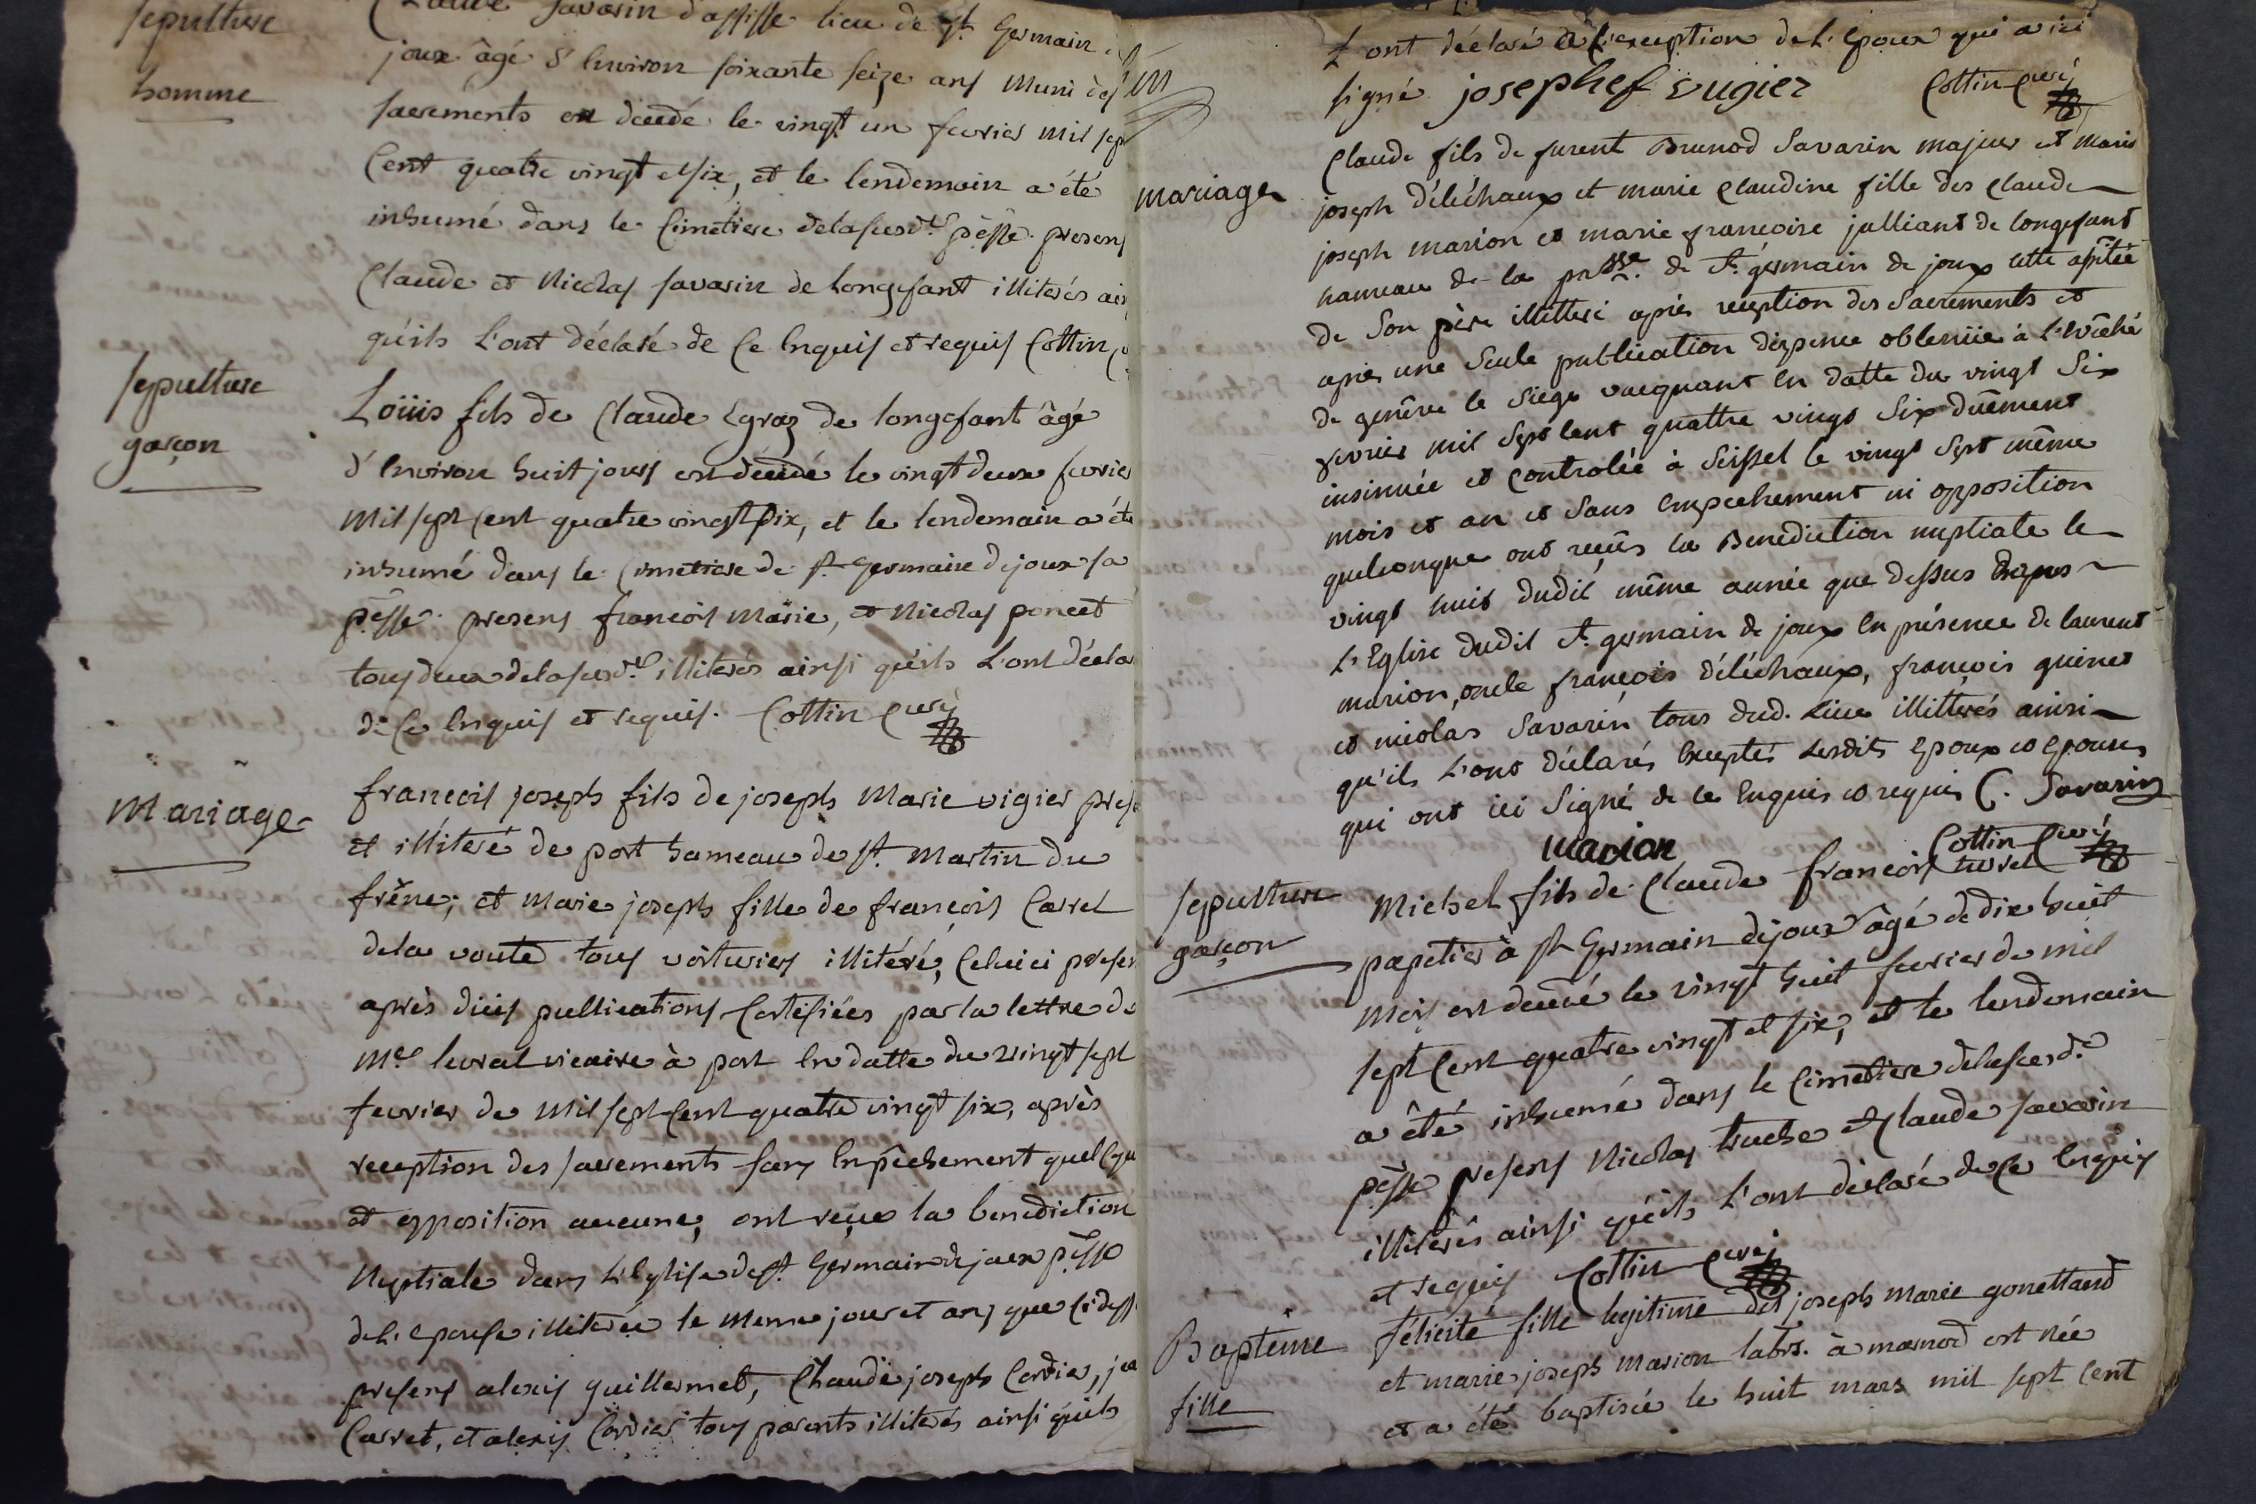 sepulture
homme
Claude Savarin d'assisse lieu de st. Germain
joux âgé d'Environ soixante seize ans Muni des
sacrements est décédé le vingt un fevrier mil sep
Cent quatre vingt et six, et le lendemain a été
inhumé dans le Cimetiere delasusd.te p.esse presens
Claude et Nicolas savarin de longefant illiterés ain
qu'ils L'ont déclaré de Ce Enquis et requis Cottin
sepulture
garçon
Loüis fils de Claude Egraz de longefant âgé
d'Environ huit jours est décédé le vingt deux fevrier
Mil sept Cent quatre vingt six, et le lendemain a été
inhumé dans le Cimetiere de st. Germain dejoux sa
p.esse presens francois Marie, et Nicolas poncet
tous deux delasusd.te illiterés ainsi qu'ils L'ont décla
de Ce Enquis et requis. Cottin Curé
Mariage
francois joseph fils de joseph Marie vigier prese
et illiteré de port hameau de st. Martin du
frêne; et Marie joseph fille de francois Carret
dela voute tous voituriers illiteré, Celui ci presen
après dües publications Certifiées par la lettre de
M.re levrat vicaire à port En datte du vingt sept
fevrier de Mil sept Cent quatre vingt six, après
reception des sacrements sans Enpêchement quelCqu
et opposition aucune, ont reçu la benediction
Nuptiale dans L'Eglise de st. Germain de joux p.esse
de L'Epouse illiterée le Meme jour et ans que Cidess
presens alexis guillermet, Claude joseph Cordier, jea
Carret, et alexis Cordier tous parents illiterés ainsi qu'ils
L'ont déclaré à L'exception de L'Epoux qui a ici
signé josephef vugier Cottin Curé
mariage
Claude fils de furent Brunod Savarin majeur et Marie
joseph d'éléchaux et marie Claudine fille des Claude
joseph marion et marie francoise julliant de longefant
hameau de la p.sse de St. germain de joux cette
de Son père illitteré après reception des Sacrements et
après une Seule publication dispense obtenüe à L'Evêché
de genêve le Siege vacquant En datte du vingt Six
fevrier mil Sept Cent quattre vingt Six duêment
insinuée et Controlée à Seissel le vingt Sept même
mois et an et Sans Empechement ni opposition
quelconque ont reçus la Benediction nuptiale le
vingt huit dudit même année que dessus dans
L'Eglise dudit St. germain de joux En présence de laurent
marion, oncle françois d'éléchaux, françois guinet
et nicolas Savarin tous dud. Lieu illittérés ainsi
qu'ils L'ont déclarés Exceptés Lesdits Epoux et Epouse
qui ont ici Signé de ce Enquis et requis C. Savarin
marion Cottin Curé
sepulture
garçon
Michel fils de Claude francois turrel
papetier à st Germain dejoux âgé de dix huit
Mois est decédé le vingt huit fevrier de mil
sept Cent quatre vingt et six, et le lendemain
a été inhumé dans le Cimetiere delasusd.e
p.esse presens Nicolas truche et Claude savarin
illiterés ainsi qu'ils L'ont déclaré de Ce Enquis
et requis Cottin Curé
Baptême
fille
félicité fille legitime des joseph marie gonettand
et marie joseph marion labrs. à marnod est née
et a été baptisée le huit mars mil sept Cent